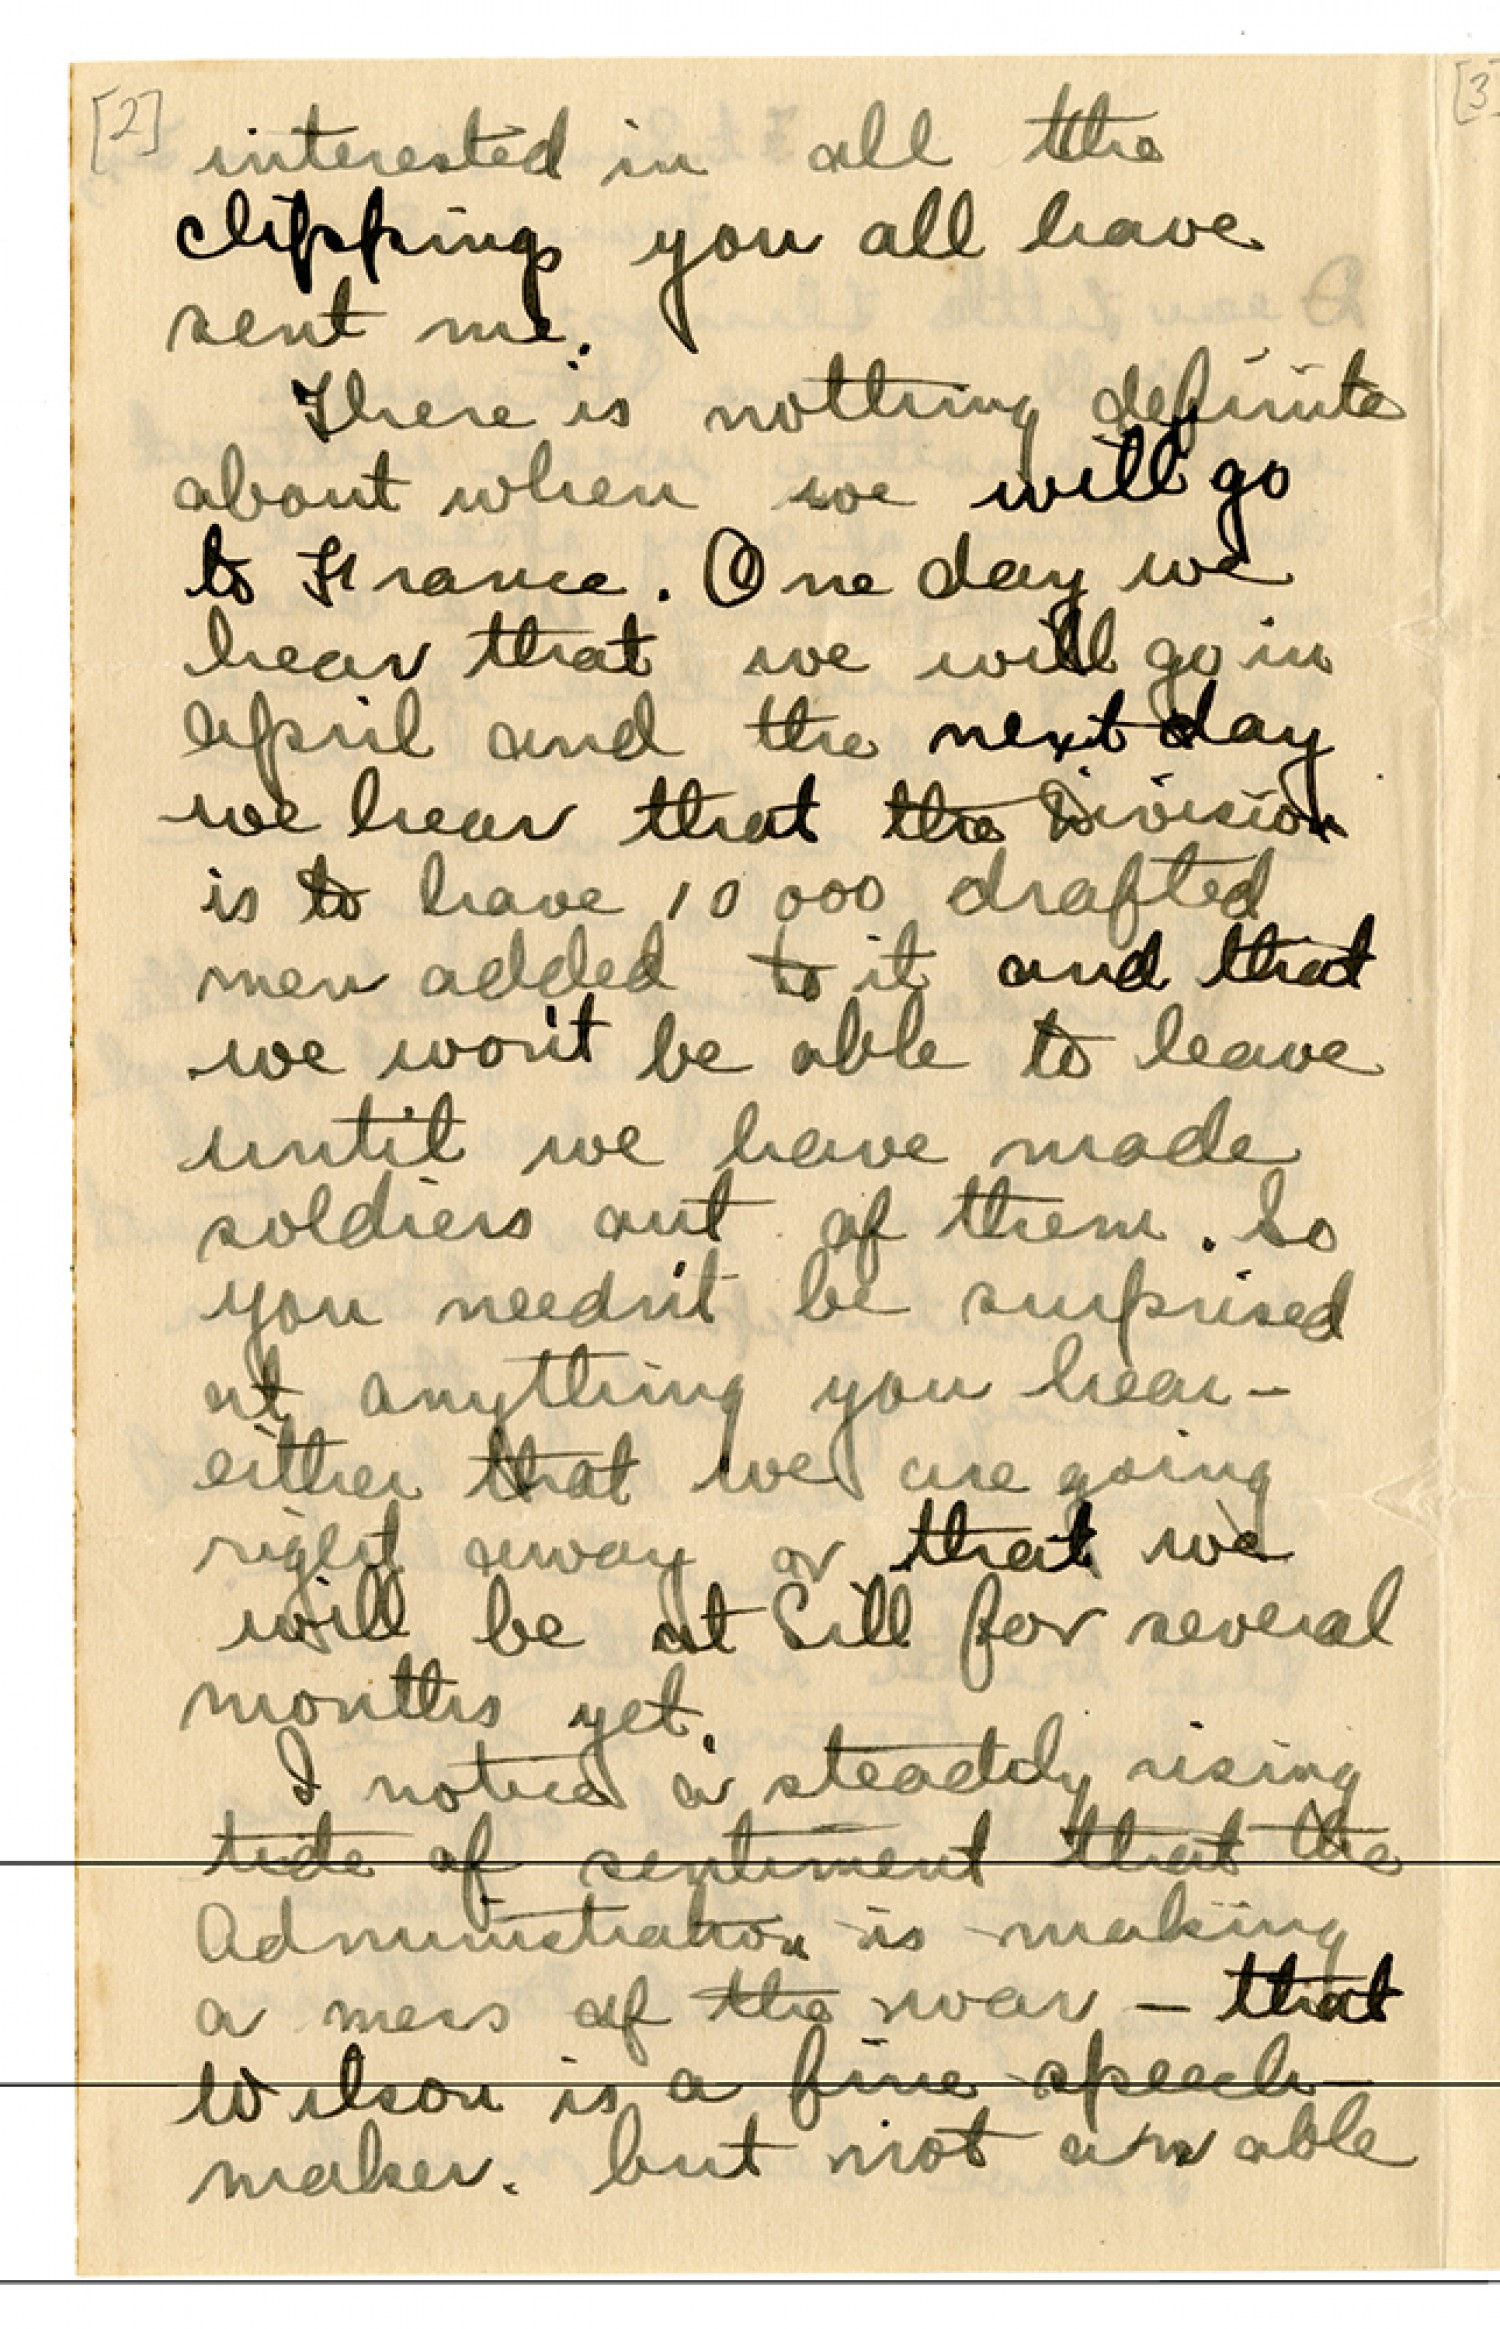 [2]
interested in all the
clippings you all have
sent me.
There is nothing definite
about when we will go
to France. One day we
hear that we will go in
April and the next day
we hear that the Division
is to have 10 000 drafted
men added to it and that
we won't be able to leave
until we have made
soldiers out of them. So
you needn't be surprised
at anything you hear -
either that we are going
right away or that we
will be at Sill for several
months yet.
I notice a steadily rising
tide of sentiment that the
Administration is making
a mess of the war - that
Wilson is a fine speech-
maker. but not an able
[3]